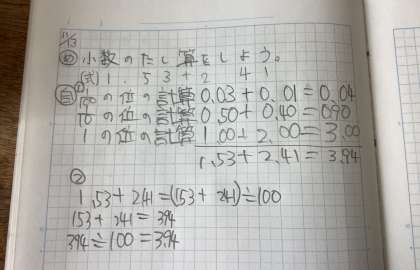 11/13
め 小数のたし算をしよう。
(式) 1.53+2.41
自① 1/100の位の計算 0.03+0.01=0.04
1/10の位の計算 0.50+0.40=0.90
1の位の計算 1.00+2.00=3.00
1.53+2.41=3.94
②
1.53+2.41=(153+241)÷100
153+241=394
394÷100=3.94